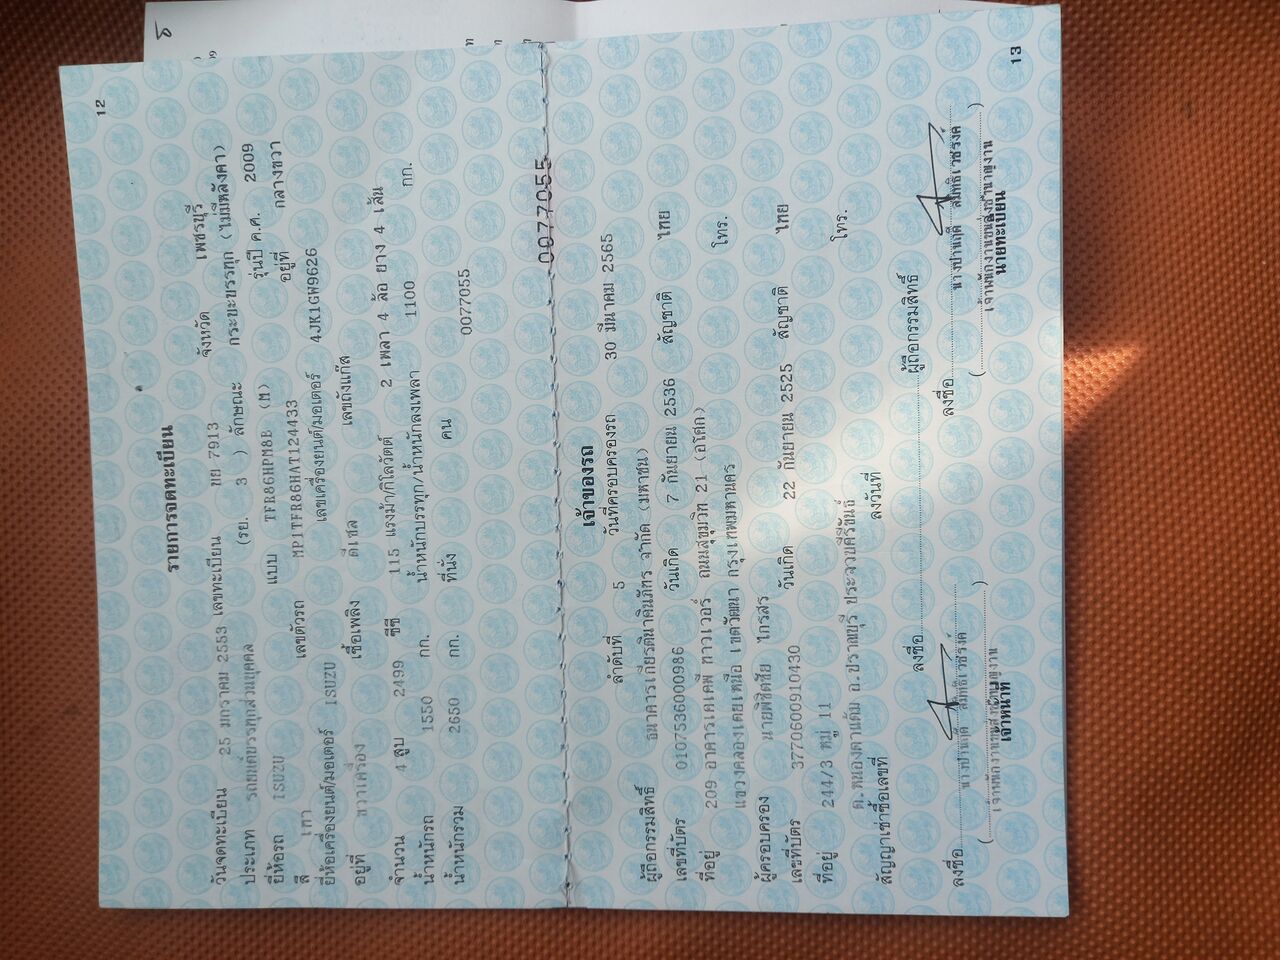 12
รายการจดทะเบียน
วันจดทะเบียน 25 มกราคม 2553 เลขทะเบียน 7913 จังหวัด เพชรบุรี
ประเภท รถยนต์บรรทุกส่วนบุคคล (รย. 3 ) ลักษณะ กระบะบรรทุก (ไม่มีหลังคา)
ยี่ห้อรถ ISUZU แบบ TFR86HPM8E (M) รุ่นปี ค.ศ. 2009
สี เทา เลขตัวรถ MP1TFR86HAT124433 อยู่ที่ กลางขวา
ยี่ห้อเครื่องยนต์/มอเตอร์ ISUZU เลขเครื่องยนต์/มอเตอร์ 4JK1GW9626
อยู่ที่ ขวาเครื่อง เชื้อเพลิง ดีเซล เลขถังแก๊ส
จำนวน 4 สูบ 2499 ซีซี 115 แรงม้า/กิโลวัตต์ 2 เพลา 4 ล้อ ยาง 4 เส้น
น้ำหนักรถ 1550 กก. น้ำหนักบรรทุก/น้ำหนักลงเพลา 1100 กก.
น้ำหนักรวม 2650 กก. ที่นั่ง คน 0077055
0077055
เจ้าของรถ
ลำดับที่ 5 วันที่ครอบครองรถ 30 มีนาคม 2565
ผู้ถือกรรมสิทธิ์ ธนาคารเกียรตินาคินภัทร จำกัด (มหาชน)
เลขที่บัตร 0107536000986 วันเกิด 7 กันยายน 2536 สัญชาติ ไทย
ที่อยู่ 209 อาคารเคเคพี ทาวเวอร์ ถนนสุขุมวิท 21 (อโศก) โทร.
แขวงคลองเตยเหนือ เขตวัฒนา กรุงเทพมหานคร
ผู้ครอบครอง นายพิชิตชัย ไกรสร
เลขที่บัตร 3770600910430 วันเกิด 22 กันยายน 2525 สัญชาติ ไทย
ที่อยู่ 244/3 หมู่ 11 โทร.
ต.หนองตาแต้ม อ.ปราณบุรี ประจวบคีรีขันธ์
สัญญาเช่าซื้อเลขที่ ลงวันที่
ลงชื่อ ผู้ถือกรรมสิทธิ์
ลงชื่อ ลงชื่อ
( ) ( )
เจ้าพนักงานขนส่งชำนาญงาน เจ้าพนักงานขนส่งชำนาญงาน
เจ้าหน้าที่ นายทะเบียน
13